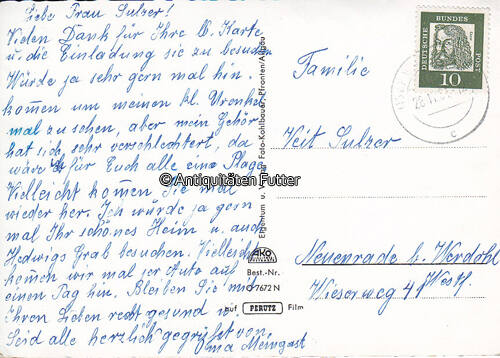 Liebe Frau Sulzer!
Vielen Dank für Ihre lb. Karte
u. die Einladung sie zu besuchen
Würde ja sehr gern mal hin
kommen um meinen kl. Urenkel
mal zu sehen, aber mein Gehör
hat sich sehr verschlechtert, da
wäre ich für Euch alle eine Plage
Vielleicht kommen Sie mal
wieder her. Ich würde ja gern
mal Ihr schönes Heim u. auch
Hedwigs Grab besuchen. Vielleicht
kommen wir mal per Auto auf
einen Tag hin. Bleiben Sie mit
Ihren Lieben recht gesund u.
Seid alle herzlich gegrüßt von
Meingast
Eigentum u. Verlag Foto-Kohlbauer, Pfronten/Allgäu
AKO
Best.-Nr.
O 7672 N
auf PERUTZ Film
DEUTSCHE BUNDESPOST
10
c
Familie
Veit Sulzer
Neuenrade b. Werdohl
Wieserweg 41 Westf.
© Antiquitäten Futter